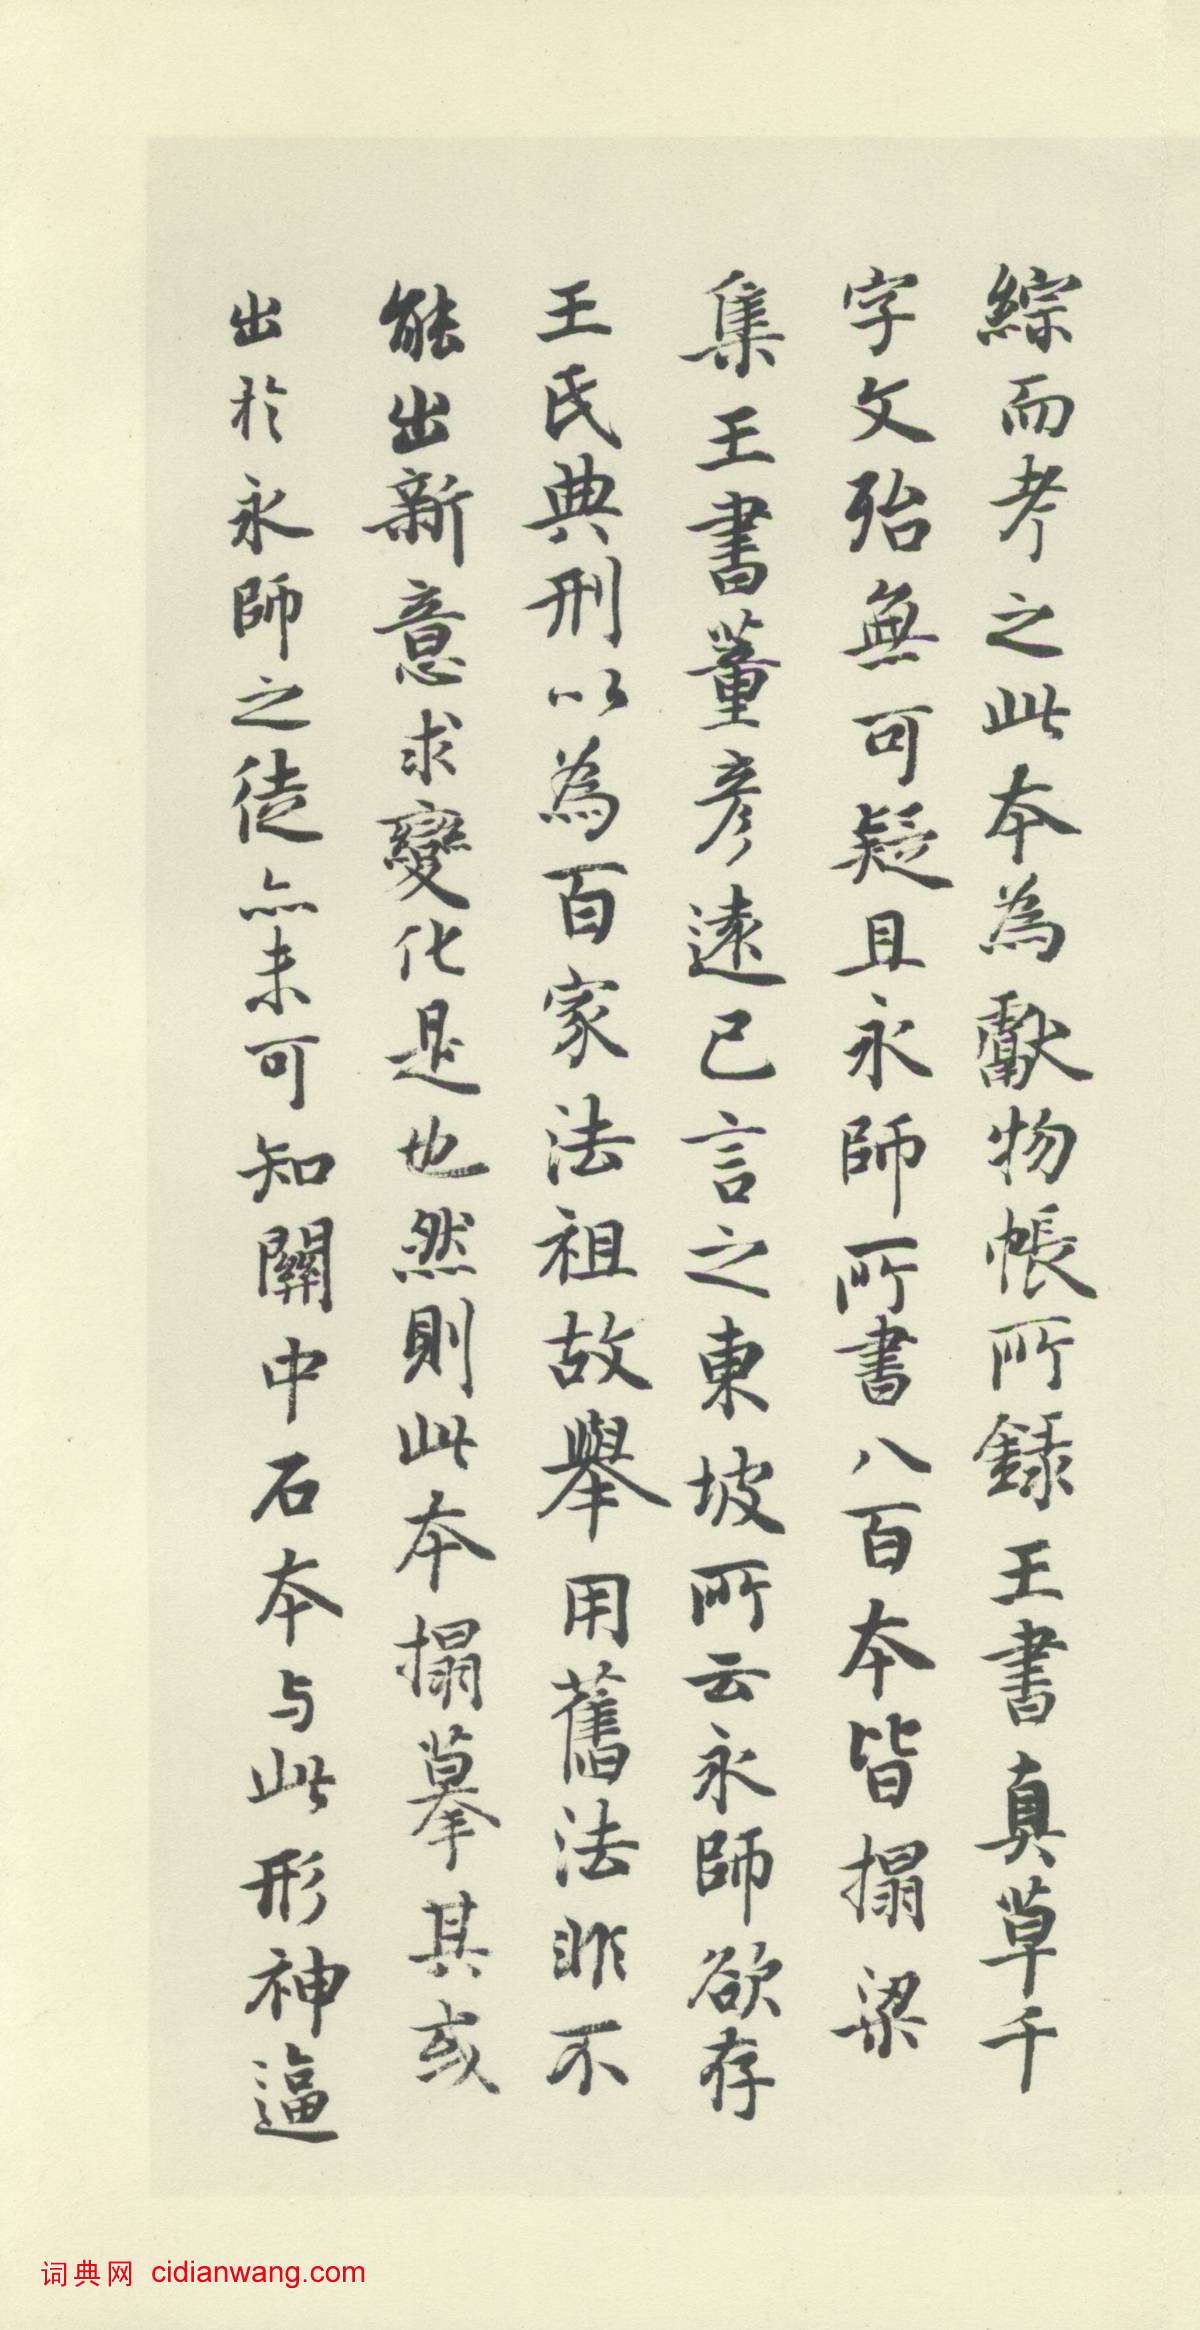 綜而考之此本為獻物帳所録王書真草千
字文殆無可疑且永師所書八百本皆搨梁
集王書董彦遠已言之東坡所云永師欲存
王氏典刑以為百家法祖故舉用舊法非不
能出新意求變化是也然則此本搨摹其或
出於永師之徒亦未可知關中石本与此形神逼
词典网 cidianwang.com